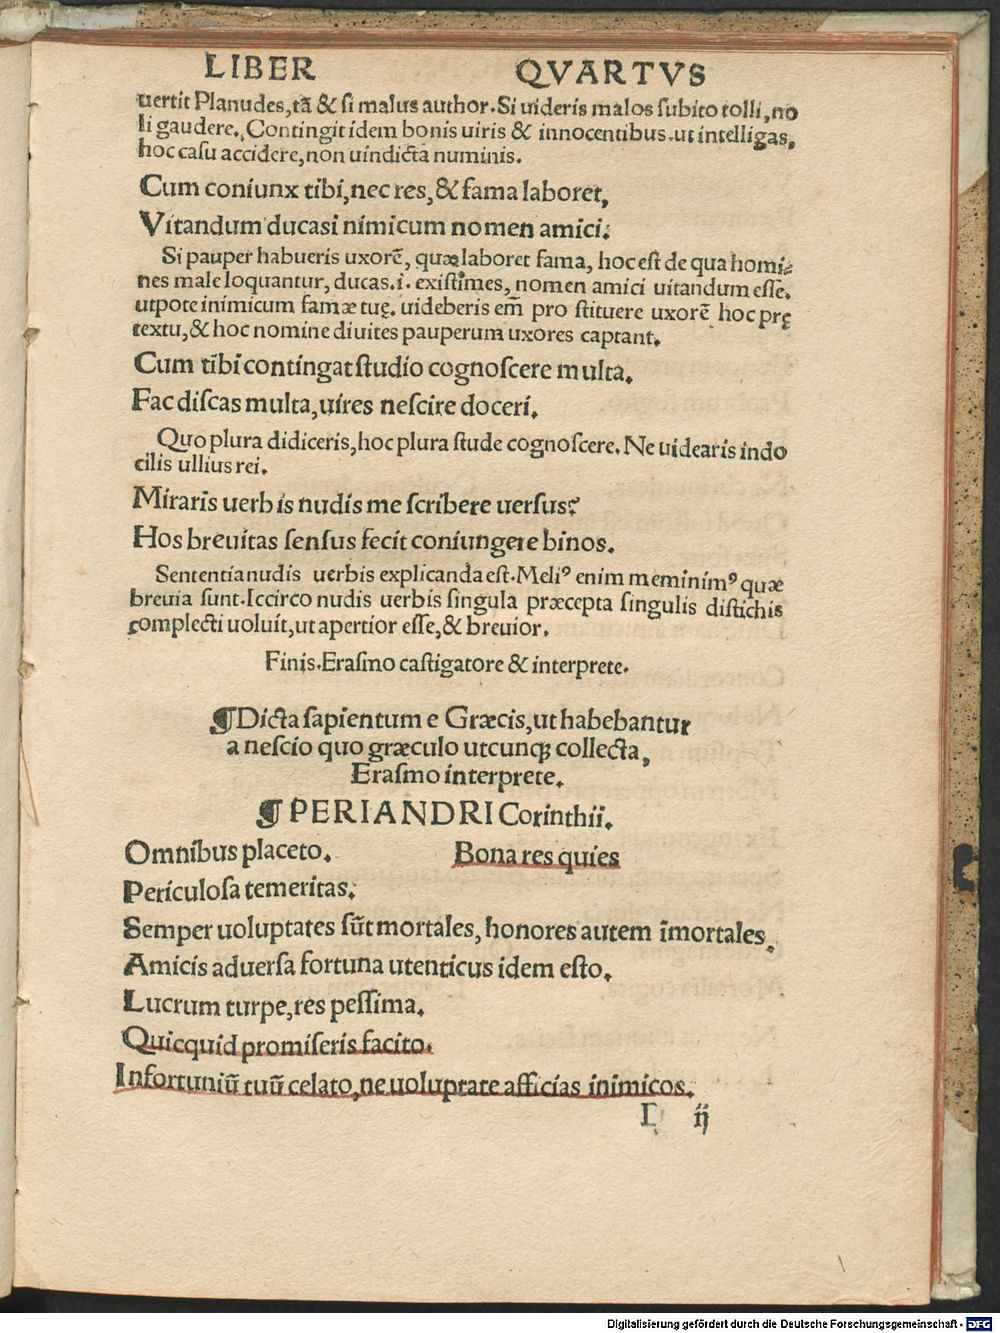 LIBER QVARTVS
uertit Planudes,tā & si malus author.Si uideris malos subito tolli,no
li gaudere.,Contingit idem bonis uiris & innocentibus.ut intelligas,
hoc casu accidere,non uindicta numinis.
Cum coniunx tibi,nec res,& fama laboret,
Vitandum ducasi nimicum nomen amici:
Si pauper habueris uxorē, quæ laboret fama, hoc est de qua homi⸗
nes male loquantur, ducas.i. existimes, nomen amici uitandum esse.
utpote inimicum famæ tuę. uideberis em̄ pro stituere uxorē hoc prę
textu,& hoc nomine diuites pauperum uxores captant.
Cum tibi contingat studio cognoscere multa.
Fac discas multa,uires nescire doceri.
Quo plura didiceris,hoc plura stude cognoscere.Ne uidearis indo
cilis ullius rei.
Miraris uerbis nudis me scribere uersus?
Hos breuitas sensus fecit coniungere binos.
Sententia nudis uerbis explicanda est.Meliꝰ enim meminimꝰ quæ
breuia sunt.Iccirco nudis uerbis singula præcepta singulis distichis
complecti uoluit,ut apertior esse,& breuior.
Finis.Erasmo castigatore & interprete.
¶Dicta sapientum e Græcis,ut habebantur
a nescio quo græculo utcunqꝫ collecta,
Erasmo interprete.
¶PERIANDRI Corinthii.
Omnibus placeto. Bona res quies
Periculosa temeritas.
Semper uoluptates sūt mortales, honores autem īmortales.
Amicis aduersa fortuna utenticus idem esto.
Lucrum turpe,res pessima.
Quicquid promiseris facito.
Infortuniū tuū celato,ne uoluptate afficias inimicos.
D ij
Digitalisierung gefördert durch die Deutsche Forschungsgemeinschaft - DFG